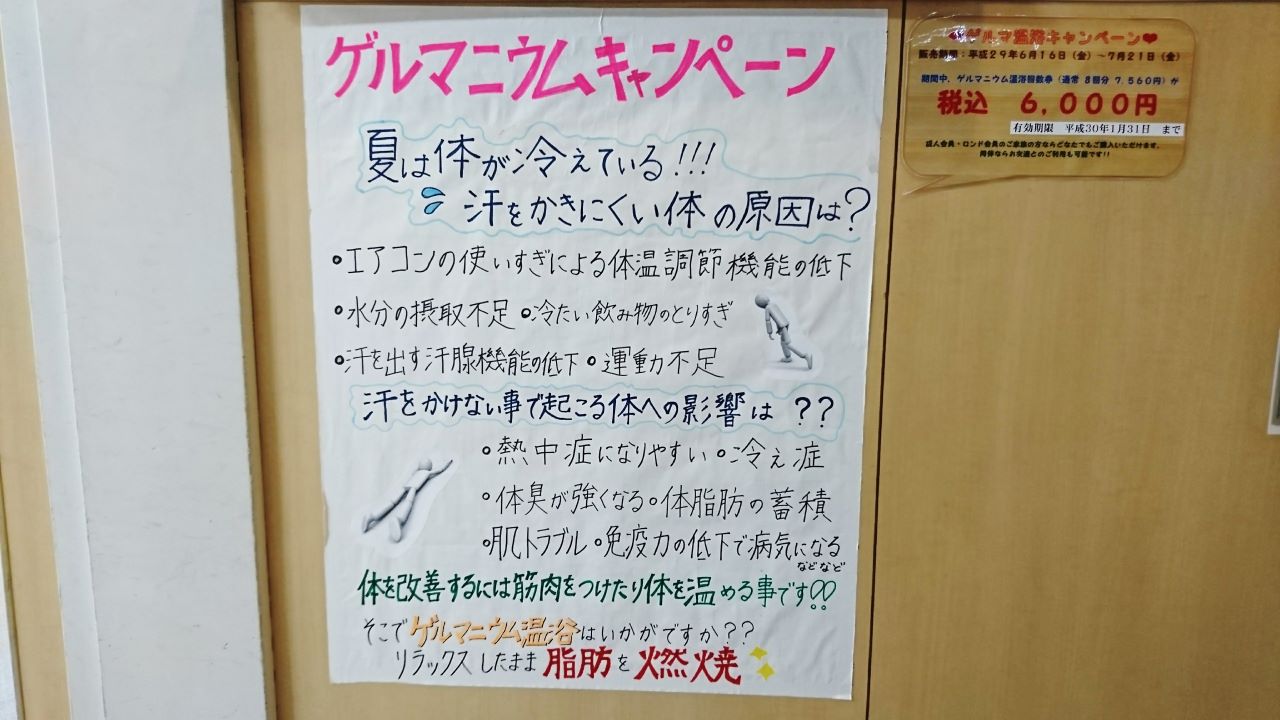 ゲルマニウムキャンペーン
夏は体が冷えている!!!
汗をかきにくい体の原因は?
•エアコンの使いすぎによる体温調節機能の低下
•水分の摂取不足 •冷たい飲み物のとりすぎ
•汗を出す汗腺機能の低下 •運動不足
汗をかけない事で起こる体への影響は ??
•熱中症になりやすい •冷え症
•体臭が強くなる •体脂肪の蓄積
•肌トラブル •免疫力の低下で病気になる
などなど
体を改善するには筋肉をつけたり体を温める事です!!
そこでゲルマニウム温谷はいかがですか??
リラックスしたまま脂肪を燃焼
❤ゲルマ温浴キャンペーン❤
販売期間:平成29年6月16日(金)~7月21日(金)
期間中、ゲルマニウム温浴回数券(通常 8回分 7,560円)が
税込 6,000円
有効期限 平成30年1月31日 まで
成人会員・ロンド会員のご家族の方ならどなたでもご購入いただけます。
同伴ならお友達とのご利用も可能です!!